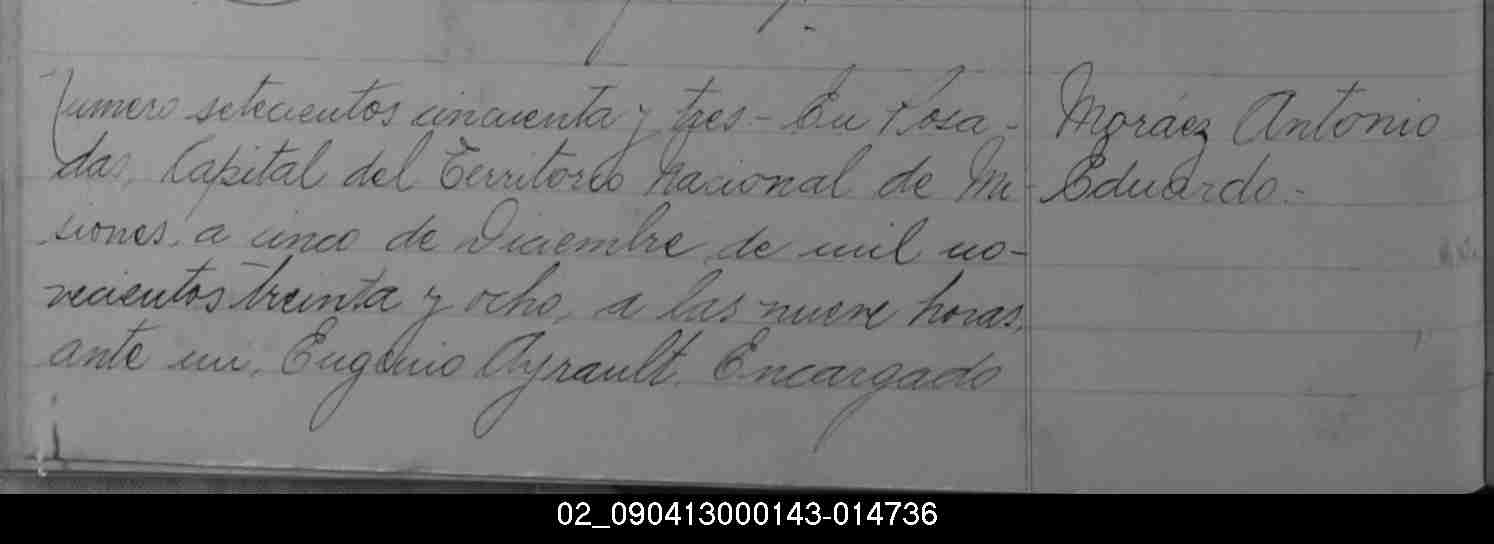 Numero setecientos cincuenta y tres.- En Posa-
das, Capital del Territorio Nacional de Mi-
siones, a cinco de Diciembre de mil no-
vecientos treinta y ocho, a las nueve horas,
ante mi, Eugenio Ayrault, Encargado
Moráez Antonio
Eduardo.-
02_090413000143-014736